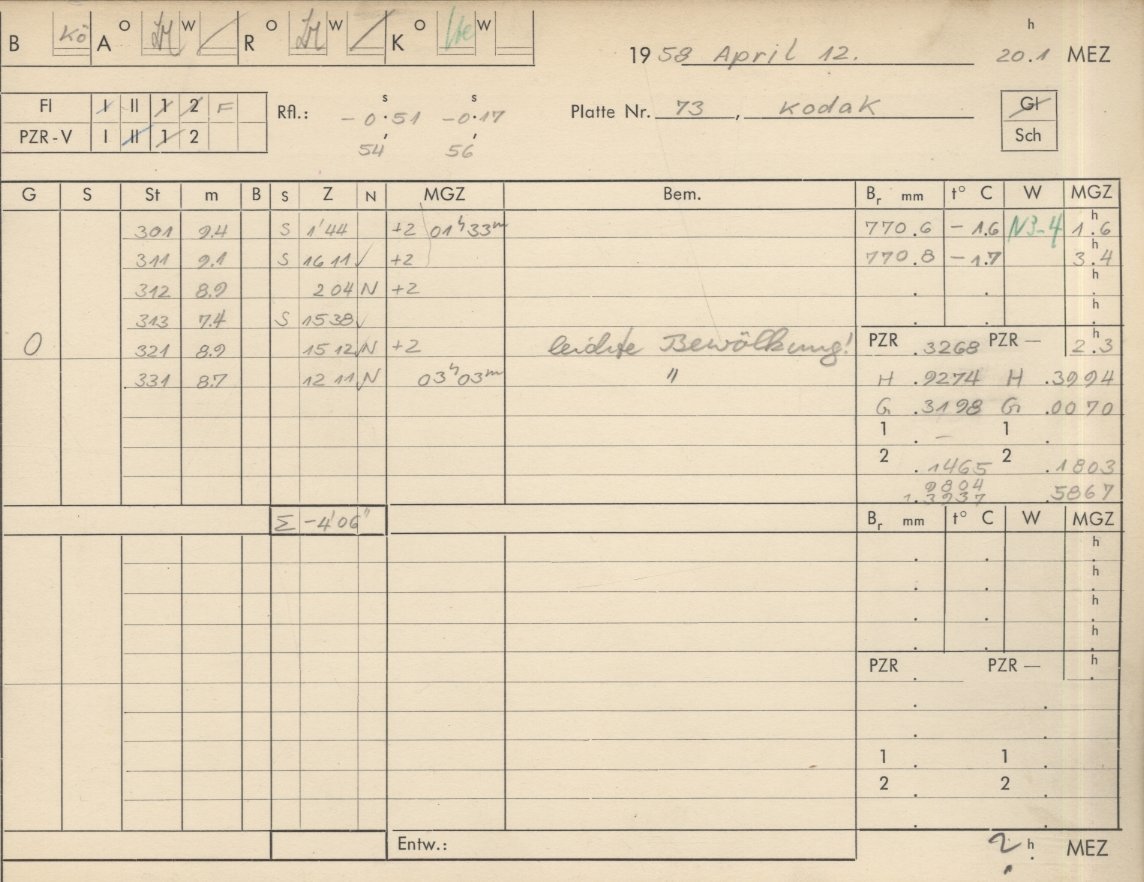 B Kö A O W R O W K O W
19 58 April 12. 20.1 h MEZ
Fl I II 1 2 F
PZR-V I II 1 2
Rfl.: -0.51 s -0.17 s
54' 56'
Platte Nr. 73, Kodak
Gl
Sch
G S St m B S Z N MGZ Bem. Br mm t° C W MGZ
301 9.4 S 1'44 +2 01h33m 770.6 -1.6 N3-4 1.6 h
311 9.1 S 16 11 +2 770.8 -1.7 3.4 h
312 8.9 2 04 N +2 . . h
313 7.4 S 15 38 . . h
0 321 8.9 15 12 N +2 leichte Bewölkung! PZR .3268 PZR — 2.3 h
331 8.7 12 11 N 03h03m " H .9274 H .3994
G .3198 G .0070
1 . - 1 .
2 .1465 2 .1803
.9804 .5867
1.3937
Σ -4'06" Br mm t° C W MGZ
. . h
. . h
. . h
. . h
PZR . PZR — h
1 . 1 .
2 . 2 .
Entw.: 2 h MEZ